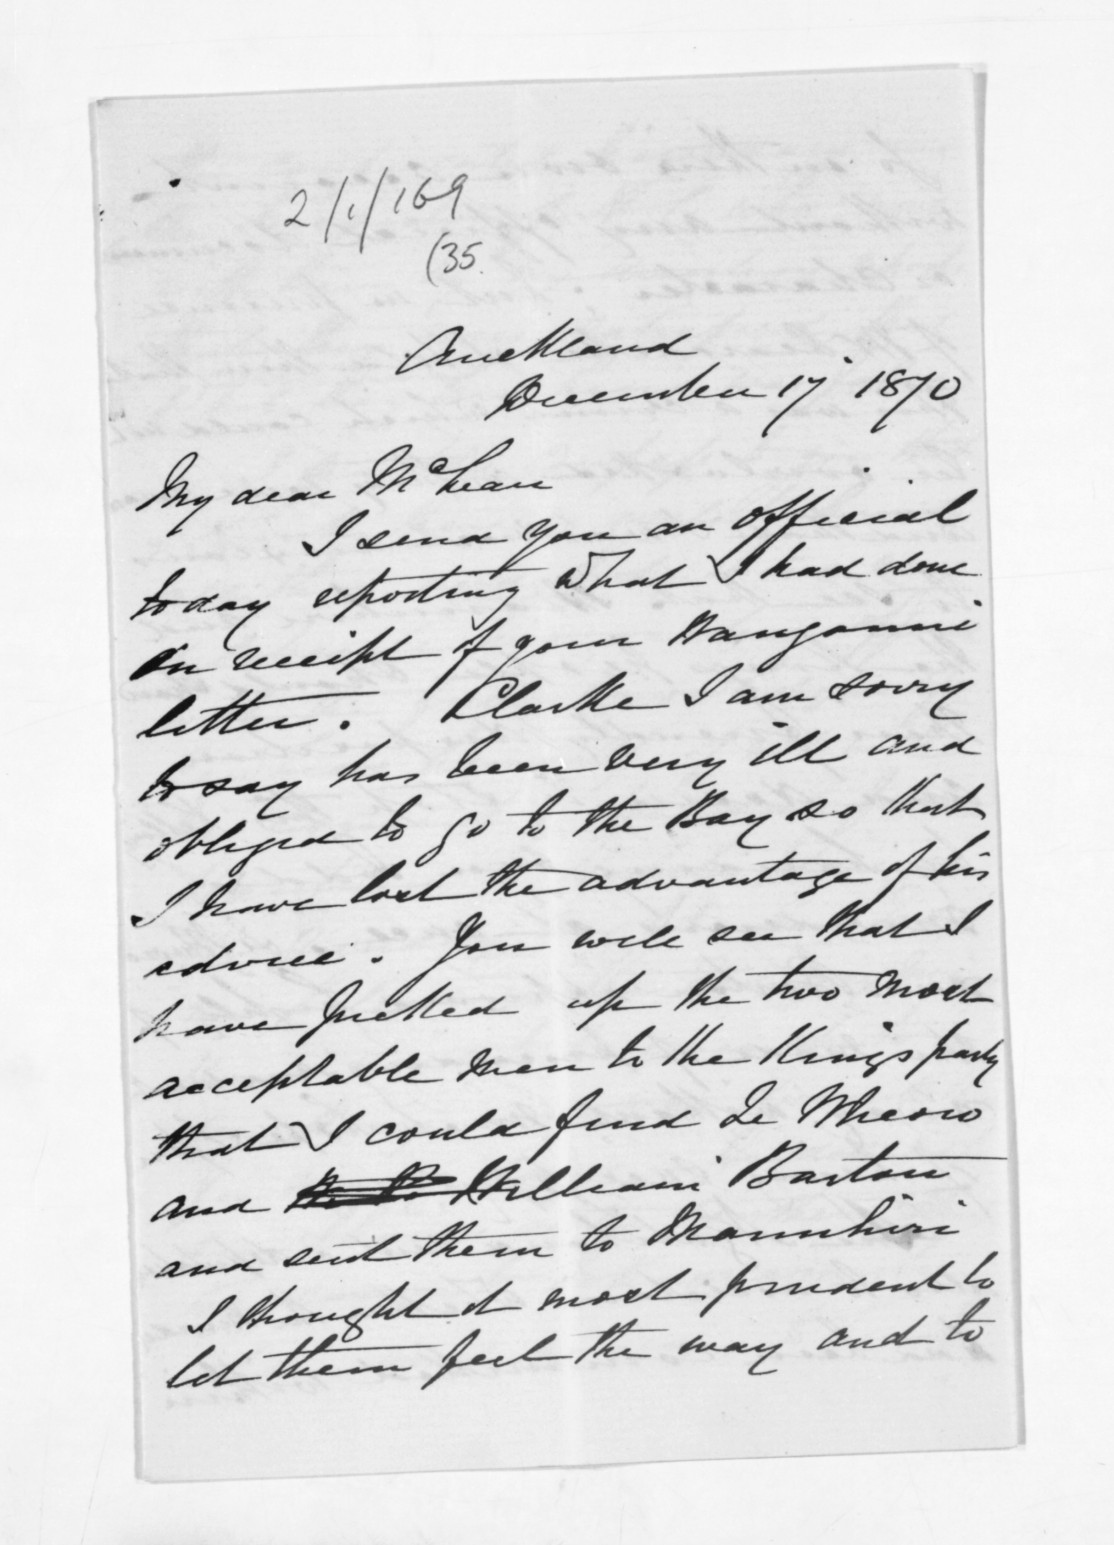 2/1/169
(35.
Auckland
December 17 1870
My dear McLean
I send you an official
today reporting what I had done
on receipt of your Wanganui
letter. Clarke I am sorry
to say has been very ill and
obliged to go to the Bay so that
I have lost the advantage of his
advice. You will see that I
have picked up the two most
acceptable men to the Kings party
that I could find Te Wheoro
and William Barton
and sent them to Manuhiri
I thought it most prudent to
let them feel the way and to